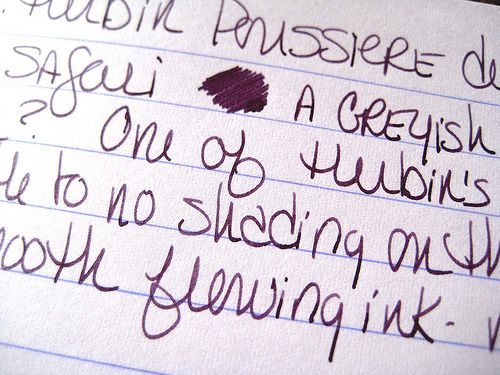 Herbin POUSSIERE de
SAfari A GREYish
? One of Herbin's
to no shading on th
ooth flowing ink.